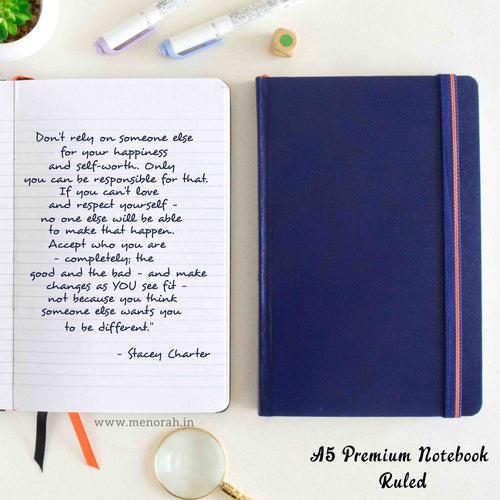 Don't rely on someone else
for your happiness
and self-worth. Only
you can be responsible for that.
If you can't love
and respect yourself -
no one else will be able
to make that happen.
Accept who you are
- completely; the
good and the bad - and make
changes as YOU see fit -
not because you think
someone else wants you
to be different."
- Stacey Charter
www.menorah.in
A5 Premium Notebook
Ruled